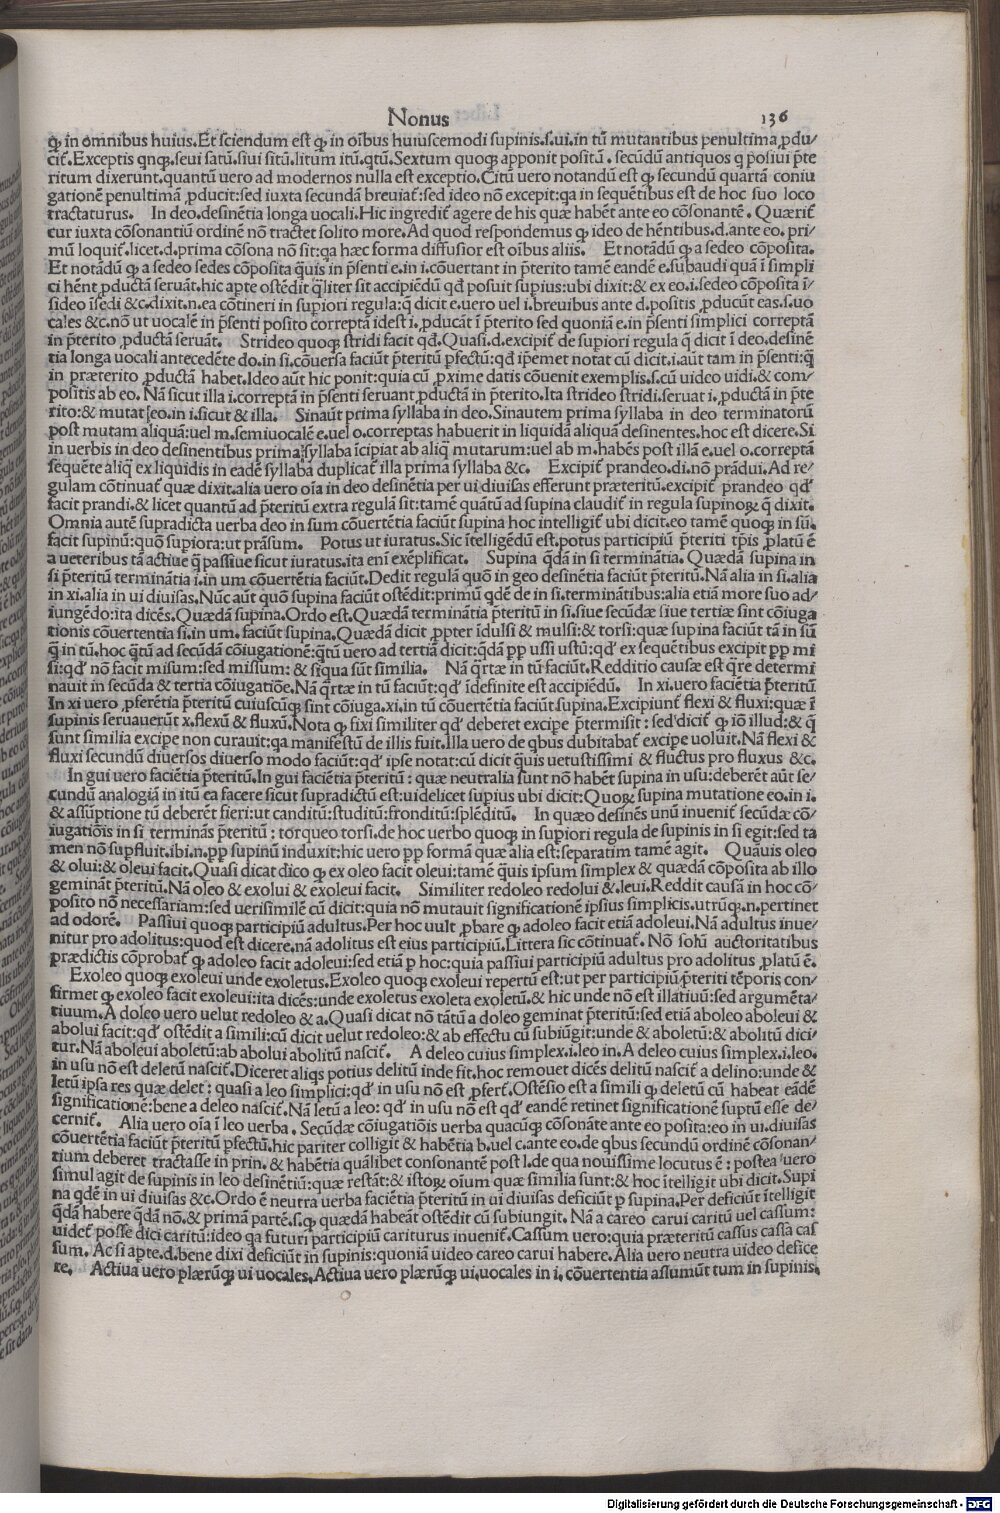 Nonus 136
ꝙ in omnibus huius. Et sciendum est ꝙ in oībus huiuscemodi supinis.s.ui.in tū mutantibus penultima ꝓdu/
cit̄. Exceptis qnqꝫ.seui satū.siui sitū.litum itū.qtū. Sextum quoqꝫ apponit positū. secūdū antiquos q p̄osiui p̄te
ritum dixerunt.quantū uero ad modernos nulla est exceptio. Citū uero notandū est ꝙ secundū quartā coniu
gationē penultimā ꝓducit:sed iuxta secundā breuiat̄:sed ideo nō excepit:qa in sequētibus est de hoc suo loco
tractaturus. In deo.desinētia longa uocali. Hic ingredit̄ agere de his quæ habēt ante eo cōsonantē. Quærit̄
cur iuxta cōsonantiū ordinē nō tractet solito more. Ad quod respondemus ꝙ ideo de hēntibus.d.ante eo. pri/
mū loquit̄.licet.d.prima cōsona nō sit:qa hæc forma diffusior est oībus aliis. Et notādū ꝙ a sedeo cōposita.
Et notādū ꝙ a sedeo sedes cōposita q̄uis in p̄senti e.in i.cōuertant in p̄terito tamē eandē e.subaudi quā ī simpli
ci hēnt ꝓductā seruāt.hic apte ostēdit q̄liter sit accipiēdū qd̄ posuit supius:ubi dixit:& ex eo.i.sedeo cōposita ī/
sideo īsedi &c.dixit.n.ea cōtineri in supiori regula:q̄ dicit e.uero uel i.breuibus ante d.positis ꝓducūt eas.s.uo
cales &c.nō ut uocalē in p̄senti posito correptā idest i.ꝓducāt ī p̄terito sed quoniā e.in p̄senti simplici correptā
in p̄terito ꝓductā seruāt. Strideo quoqꝫ stridi facit qd̄.Quasi.d.excipit̄ de supiori regula q̄ dicit ī deo.desinē
tia longa uocali antecedēte do.in si.cōuersa faciūt p̄teritū ꝑfectū:qd̄ ip̄emet notat cū dicit.i.aūt tam in p̄senti:q̄
in præterito ꝓductā habet.Ideo aūt hic ponit:quia cū ꝓxime datis cōuenit exemplis.s.cū uideo uidi.& com/
positis ab eo. Nā sicut illa i.correptā in p̄senti seruant ꝓductā in p̄terito.Ita strideo stridi.seruat i.ꝓductā in p̄te
rito:& mutat eo.in i.sicut & illa. Sinaūt prima syllaba in deo.Sinautem prima syllaba in deo terminatorū
post mutam aliquā:uel m.semiuocalē e.uel o.correptas habuerit in liquidā aliquā desinentes.hoc est dicere.Si
in uerbis in deo desinentibus prima syllaba īcipiat ab aliq̄ mutarum:uel ab m.habēs post illā e.uel o.correptā
sequēte aliq̄ ex liquidis in eadē syllaba duplicat̄ illa prima syllaba &c. Excipit̄ prandeo.di.nō prādui.Ad re/
gulam cōtinuat̄ quæ dixit.alia uero oīa in deo desinētia per ui diuisas efferunt præteritū.excipit̄ prandeo qd̓
facit prandi.& licet quantū ad p̄teritū extra regulā sit:tamē quātū ad supina claudit̄ in regula supinoꝝ q̄ dixit.
Omnia autē supradicta uerba deo in sum cōuertētia faciūt supina hoc intelligit̄ ubi dicit.eo tamē quoqꝫ in sū.
facit supinū:quō supiora:ut prāsum. Potus ut iuratus.Sic ītelligēdū est.potus participiū p̄teriti tp̄is ꝓlatū ē
a ueteribus tā actiue q̄ passiue sicut iuratus.ita eni exēplificat. Supina q̄dā in si terminātia. Quædā supina in
si p̄teritū terminātia i.in um cōuertētia faciūt.Dedit regulā quō in geo desinētia faciūt p̄teritū.Nā alia in si.alia
in xi.alia in ui diuisas.Nūc aūt quō supina faciūt ostēdit:primū qdē de in si.terminātibus:alia etiā more suo ad/
iungēdo:ita dicēs.Quædā supina.Ordo est.Quædā terminātia p̄teritū in si.siue secūdæ siue tertiæ sint cōiuga
tionis cōuertentia si.in um.faciūt supina.Quædā dicit ꝓpter īdulsi & mulsi:& torsi:quæ supina faciūt tā in sū
q̄ in tū.hoc q̄tū ad secūdā cōiugationē:q̄tū uero ad tertiā dicit:q̄dā ꝓp ussi ustū:qd̓ ex sequētibus excipit ꝓp mi
si:qd̓ nō facit misum:sed missum: & siqua sūt similia. Nā q̄rtæ in tū faciūt.Redditio causæ est q̄re determi
nauit in secūda & tertia cōiugatiōe.Nā q̄rtæ in tū faciūt:qd̓ īdefinite est accipiēdū. In xi.uero faciētia p̄teritū
In xi uero ꝓferētia p̄teritū cuiuscūqꝫ sint cōiuga.xi.in tū cōuertētia faciūt supina.Excipiunt̄ flexi & fluxi:quæ ī
supinis seruauerūt x.flexū & fluxū.Nota ꝙ fixi similiter qd̓ deberet excipe p̄termisit : sed dicit̄ ꝙ iō illud:& q̄
sunt similia excipe non curauit:qa manifestū de illis fuit.Illa uero de qbus dubitabat̄ excipe uoluit.Nā flexi &
fluxi secundū diuersos diuerso modo faciūt:qd̓ ipse notat:cū dicit q̄uis uetustissimi & fluctus pro fluxus &c.
In gui uero faciētia p̄teritū.In gui faciētia p̄teritū : quæ neutralia sunt nō habēt supina in usu:deberēt aūt se/
cundū analogiā in itū ea facere sicut supradictū est:uidelicet supius ubi dicit:Quoꝝ supina mutatione eo.in i.
& assūptione tū deberēt fieri:ut canditū:studitū:fronditū:splēditū. In quæo desinēs unū inuenit̄ secūdæ cō/
iugatiōis in si terminās p̄teritū : torqueo torsi.de hoc uerbo quoqꝫ in supiori regula de supinis in si egit:sed ta
men nō supfluit.ibi.n.ꝓp supinū induxit:hic uero ꝓp formā quæ alia est:separatim tamē agit. Quāuis oleo
& olui:& oleui facit.Quasi dicat dico ꝙ ex oleo facit oleui:tamē q̄uis ipsum simplex & quædā cōposita ab illo
gemināt p̄teritū.Nā oleo & exolui & exoleui facit. Similiter redoleo redolui &.leui.Reddit causā in hoc cō/
posito nō necessariam:sed uerisimilē cū dicit:quia nō mutauit significationē ipsius simplicis.utrūqꝫ.n.pertinet
ad odorē. Passiui quoqꝫ participiū adultus.Per hoc uult ꝓbare ꝙ adoleo facit etiā adoleui.Nā adultus inue/
nitur pro adolitus:quod est dicere.nā adolitus est eius participiū.Littera sic cōtinuat̄. Nō solū auctoritatibus
prædictis cōprobat̄ ꝙ adoleo facit adoleui:sed etiā ꝑ hoc:quia passiui participiū adultus pro adolitus ꝓlatū ē.
Exoleo quoqꝫ exoleui unde exoletus.Exoleo quoqꝫ exoleui repertū est:ut per participiū p̄teriti tēporis con/
firmet ꝙ exoleo facit exoleui:ita dicēs:unde exoletus exoleta exoletū.& hic unde nō est illatiuū:sed argumēta/
tiuum.A doleo uero uelut redoleo & a.Quasi dicat nō tātū a doleo geminat p̄teritū:sed etiā aboleo aboleui &
abolui facit:qd̓ ostēdit a simili:cū dicit uelut redoleo:& ab effectu cū subiūgit:unde & aboletū:& abolitū dici/
tur.Nā aboleui aboletū:ab abolui abolitū nascit̄. A deleo cuius simplex.i.leo in.A deleo cuius simplex.i.leo.
in usu nō est deletū nascit̄.Diceret aliqs potius delitū inde fit.hoc remouet dicēs delitū nascit̄ a delino:unde &
letū ipsa res quæ delet : quasi a leo simplici:qd̓ in usu nō est ꝓfert̄.Ostēsio est a simili ꝙ deletū cū habeat eādē
significationē:bene a deleo nascit̄.Nā letū a leo: qd̓ in usu nō est qd̓ eandē retinet significationē suptū esse de/
cernit̄. Alia uero oīa ī leo uerba . Secūdæ cōiugatiōis uerba quacūqꝫ cōsonāte ante eo posita:eo in ui.diuisas
cōuertētia faciūt p̄teritū ꝑfectū.hic pariter colligit & habētia b.uel c.ante eo.de qbus secundū ordinē cōsonan/
tium deberet tractasse in prin.& habētia quālibet consonantē post l.de qua nouissime locutus ē : postea uero
simul agit de supinis in leo desinētiū:quæ restāt:& istoꝝ oīum quæ similia sunt:& hoc ītelligit ubi dicit.Supi
na qdē in ui diuisas &c.Ordo ē neutra uerba faciētia p̄teritū in ui diuisas deficiūt ꝑ supina.Per deficiūt ītelligit
q̄dā habere q̄dā nō.& primā partē.s.ꝙ quædā habeāt ostēdit cū subiungit. Nā a careo carui caritū uel cassum:
uidet̄ posse dici caritū:ideo qa futuri participiū cariturus inuenit̄.Cassum uero:quia præteritū cassus cassa cas
sum. Ac si apte.d.bene dixi deficiūt in supinis:quoniā uideo careo carui habere.Alia uero neutra uideo defice
re. Actiua uero plærūqꝫ ui uocales.Actiua uero plærūqꝫ ui.uocales in i.cōuertentia assumūt tum in supinis.
Digitalisierung gefördert durch die Deutsche Forschungsgemeinschaft - DFG